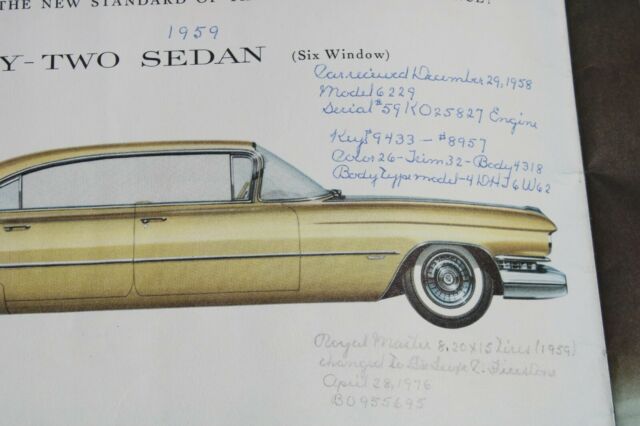 THE NEW STANDARD OF
1959
Y-TWO SEDAN (Six Window)
Car received December 29, 1958
Model 6229
Serial #59K025827 Engine
Keys #9433 - #8957
Color 26 - Trim 32 - Body 4318
Body Type model - 4DHT6W62
Royal Master 8.20x15 tires (1959)
changed to Firestone
April 28, 1976
BO955695